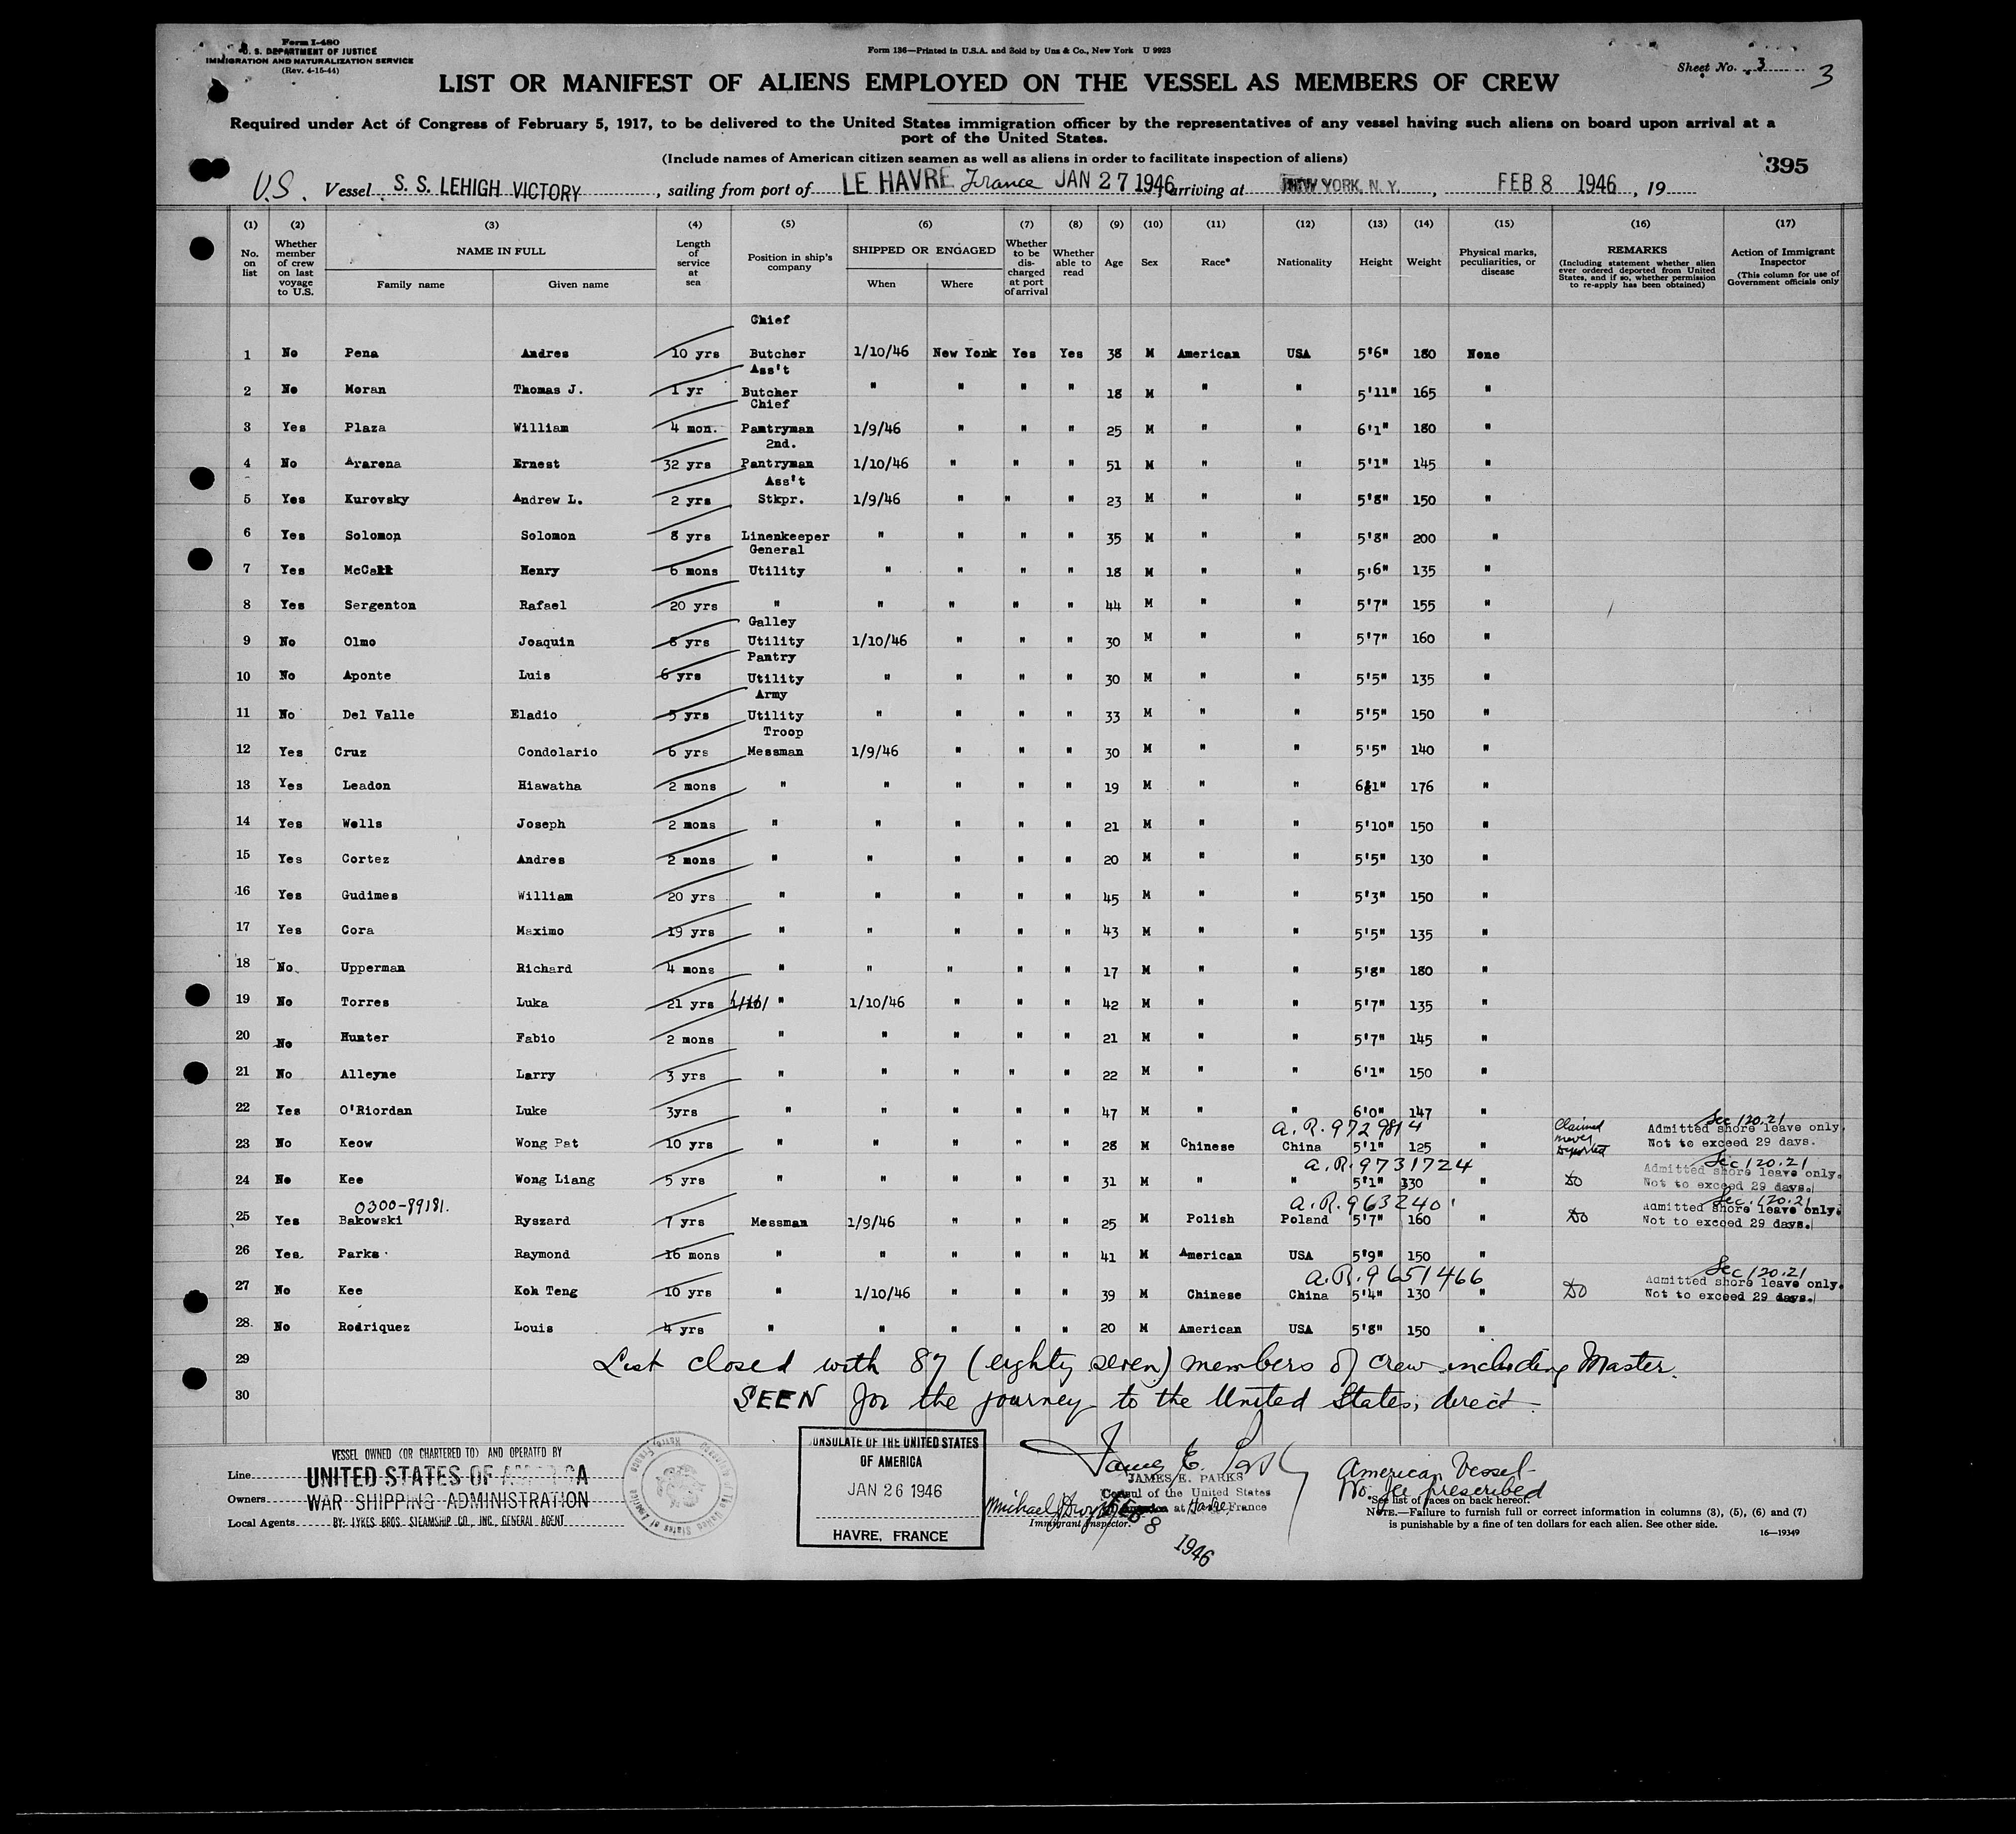 Form I-480
U. S. DEPARTMENT OF JUSTICE
IMMIGRATION AND NATURALIZATION SERVICE
(Rev. 4-15-44)
Form 136—Printed in U.S.A. and Sold by Unz & Co., New York U 9923
Sheet No. 3
3
LIST OR MANIFEST OF ALIENS EMPLOYED ON THE VESSEL AS MEMBERS OF CREW
Required under Act of Congress of February 5, 1917, to be delivered to the United States immigration officer by the representatives of any vessel having such aliens on board upon arrival at a
port of the United States.
(Include names of American citizen seamen as well as aliens in order to facilitate inspection of aliens)
395
U.S. Vessel S. S. LEHIGH VICTORY, sailing from port of LE HAVRE France JAN 27 1946, arriving at NEW YORK, N. Y., FEB 8 1946, 19
(1) (2) (3) (4) (5) (6) (7) (8) (9) (10) (11) (12) (13) (14) (15) (16) (17)
No. on list
Whether member of crew on last voyage to U.S.
NAME IN FULL
Family name Given name
Length of service at sea
Position in ship's company
SHIPPED OR ENGAGED
When Where
Whether to be discharged at port of arrival
Whether able to read
Age
Sex
Race*
Nationality
Height
Weight
Physical marks, peculiarities, or disease
REMARKS
(Including statement whether alien ever ordered deported from United States, and if so, whether permission to re-apply has been obtained)
Action of Immigrant Inspector
(This column for use of Government officials only
1 No Pena Andres 10 yrs Chief Butcher 1/10/46 New York Yes Yes 38 M American USA 5'6" 180 None
2 No Moran Thomas J. 1 yr Ass't Butcher " " " " 18 M " " 5'11" 165 "
3 Yes Plaza William 4 mon. Chief Pantryman 1/9/46 " " " 25 M " " 6'1" 180 "
4 No Ararena Ernest 32 yrs 2nd. Pantryman 1/10/46 " " " 51 M " " 5'1" 145 "
5 Yes Kurovsky Andrew L. 2 yrs Ass't Stkpr. 1/9/46 " " " 23 M " " 5'8" 150 "
6 Yes Solomon Solomon 8 yrs Linenkeeper " " " " 35 M " " 5'8" 200 "
7 Yes Henry 6 mons General Utility " " " " 18 M " " 5'6" 135 "
8 Yes Sergenton Rafael 20 yrs " " " " " 44 M " " 5'7" 155 "
9 No Olmo Joaquin 8 yrs Galley Utility 1/10/46 " " " 30 M " " 5'7" 160 "
10 No Aponte Luis 6 yrs Pantry Utility " " " " 30 M " " 5'5" 135 "
11 No Del Valle Eladio 5 yrs Army Utility " " " " 33 M " " 5'5" 150 "
12 Yes Cruz Condolario 6 yrs Troop Messman 1/9/46 " " " 30 M " " 5'5" 140 "
13 Yes Leadon Hiawatha 2 mons " " " " " 19 M " " 6'1" 176 "
14 Yes Wells Joseph 2 mons " " " " " 21 M " " 5'10" 150 "
15 Yes Cortez Andres 2 mons " " " " " 20 M " " 5'5" 130 "
16 Yes Gudimes William 20 yrs " " " " " 45 M " " 5'3" 150 "
17 Yes Cora Maximo 19 yrs " " " " " 43 M " " 5'5" 135 "
18 No. Upperman Richard 4 mons " " " " " 17 M " " 5'8" 180 "
19 No Torres Luka 21 yrs " 1/10/46 " " " 42 M " " 5'7" 135 "
20 No Hunter Fabio 2 mons " " " " " 21 M " " 5'7" 145 "
21 No Alleyne Larry 3 yrs " " " " " 22 M " " 6'1" 150 "
22 Yes O'Riordan Luke 3yrs " " " " " 47 M " " 6'0" 147 "
A.R. 9729814 Sec 120.21
23 No Keow Wong Pat 10 yrs " " " " " 28 M Chinese China 5'1" 125 " Claimed never deported Admitted shore leave only. Not to exceed 29 days.
A.R. 9731724 Sec 120.21
24 No Kee Wong Liang 5 yrs " " " " " 31 M " " 5'1" 130 " Do Admitted shore leave only. Not to exceed 29 days.
0300-89181. A.R. 963240 Sec. 120.21
25 Yes Bakowski Ryszard 7 yrs Messman 1/9/46 " " " 25 M Polish Poland 5'7" 160 " Do Admitted shore leave only. Not to exceed 29 days.
26 Yes. Parks Raymond 16 mons " " " " " 41 M American USA 5'9" 150 "
A.R. 9651466 Sec 120.21
27 No Kee Koh Teng 10 yrs " 1/10/46 " " " 39 M Chinese China 5'4" 130 " Do Admitted shore leave only. Not to exceed 29 days.
28. No Rodriquez Louis 4 yrs " " " " " 20 M American USA 5'8" 150 "
29 List closed with 87 (eighty seven) members of crew including Master.
30 SEEN for the journey to the United States, direct.
VESSEL OWNED (OR CHARTERED TO) AND OPERATED BY
Line UNITED STATES OF AMERICA
Owners WAR SHIPPING ADMINISTRATION
Local Agents BY: LYKES BROS. STEAMSHIP CO., INC., GENERAL AGENT
CONSULATE OF THE UNITED STATES
OF AMERICA
JAN 26 1946
HAVRE, FRANCE
JAMES E. PARKS
Consul of the United States
at Havre, France
Immigrant Inspector.
FEB 8 1946
American Vessel
No fee prescribed
*See list of races on back hereof.
NOTE.—Failure to furnish full or correct information in columns (3), (5), (6) and (7)
is punishable by a fine of ten dollars for each alien. See other side.
16—19349